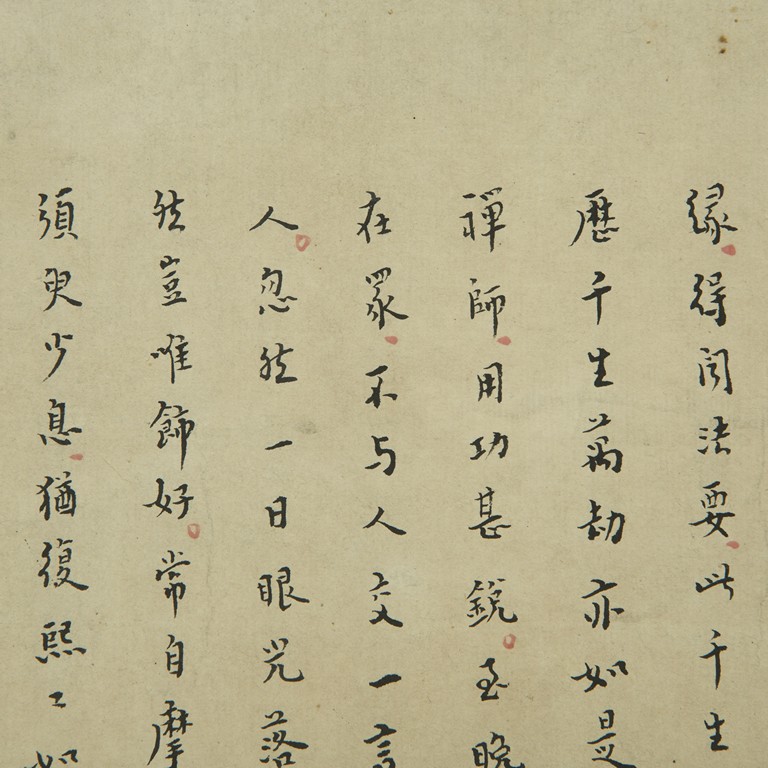 缘得闻法要此千生
歷千生萬劫亦如是
禪師用功甚銳至晚
在眾不与人交一言
人忽然一日眼光落
然豈唯飾好常自摩
須臾少息猶復熙〻如